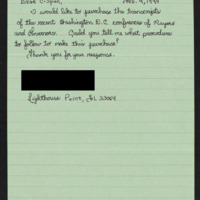 Dear C-Span, Dec. 9, 1994
I would like to purchase the transcripts
of the recent Washington D.C. conference of Mayors
and Governors. Could you tell me what procedure
to follow to make this purchase?
Thank you for your response.
Lighthouse Point, Fl. 33064